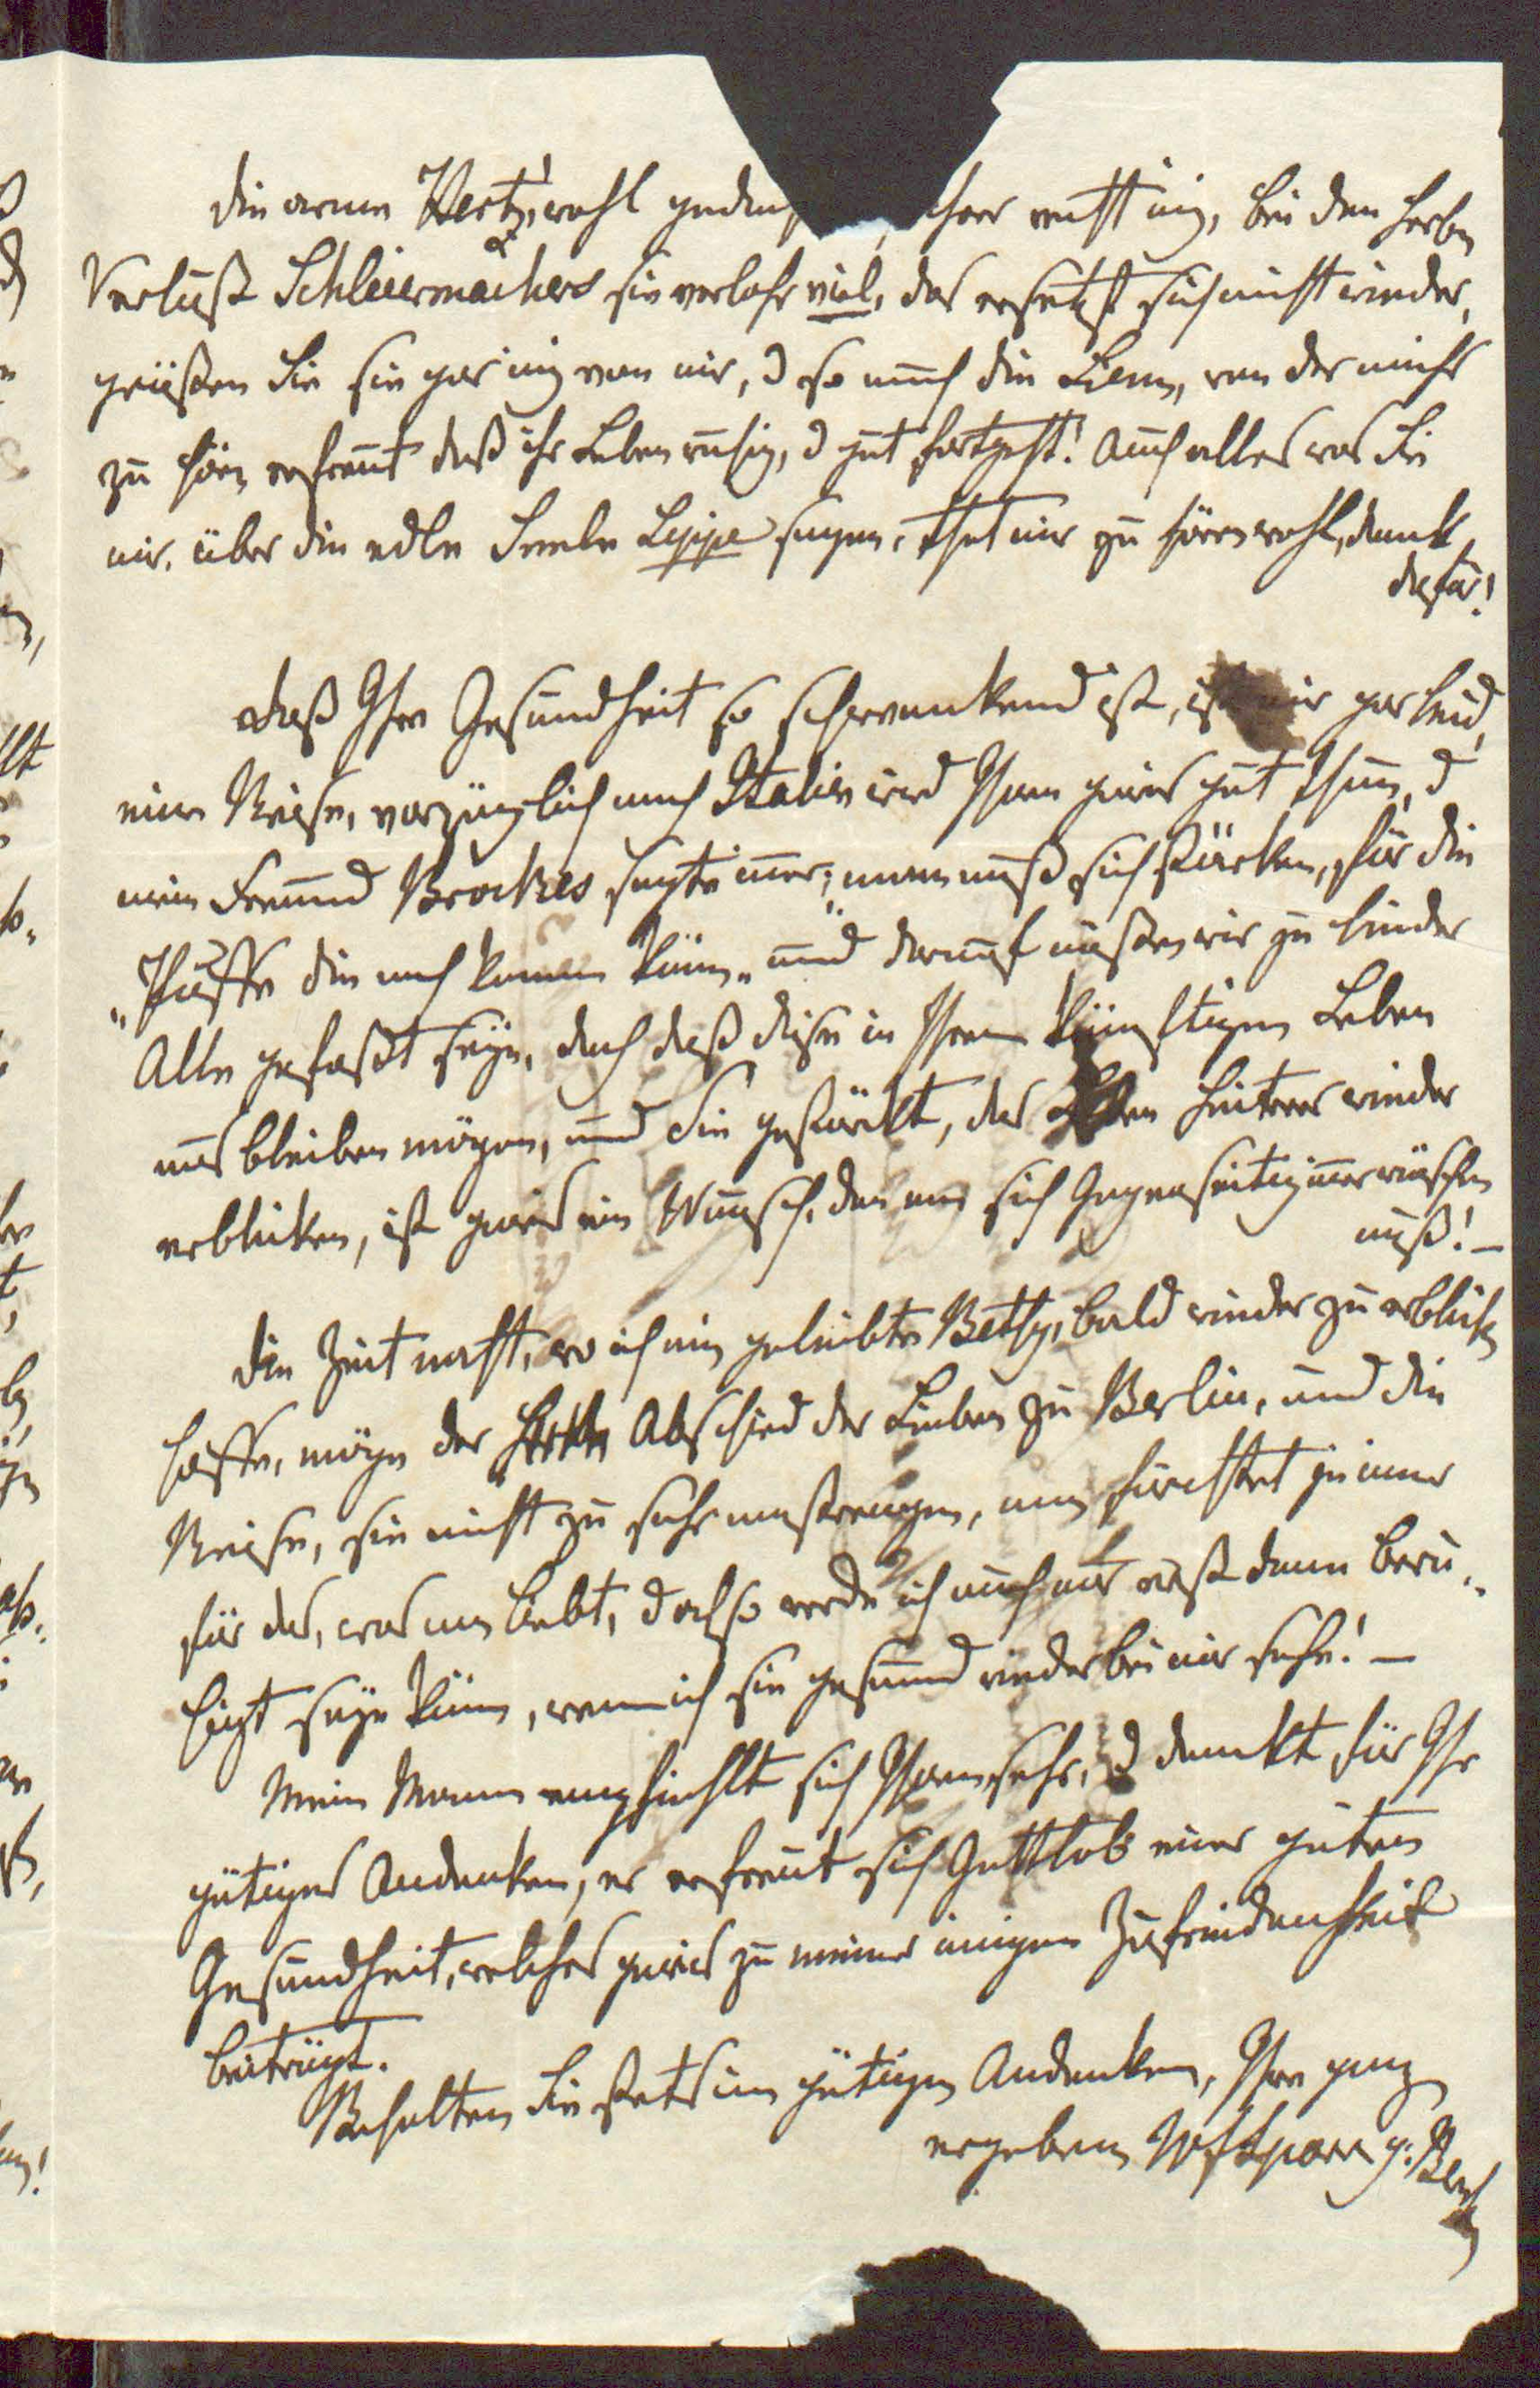 die arme Hertz, wohl gedenk ihrer recht inig, bei den herbn
Verlust Schleiermachers sie verlohr viel, das ersetzt sich nicht wieder,
grüßen Sie sie gar inig von mir, d so auch die Liem, von der mich's
zu hörn erfreut daß ihr Leben ruhig, d gut fortgeht! Auch alles was Sie
mir, über die edle Seele Lippe sagen, that mir zu hören wohl, dank
dafür!
daß Ihre Gesundheit so schwankend ist, ist mir gar leid,
eine Reise, vorzüglich nach Italien wird Ihnen gewis gut thun, d
mein Freund Brockes sagte imer; „man muß sich stärken, für die
„Püffe die noch kommen könn„ und darauf müßen wir ja leider
Alle gefaßt seyn, doch daß diese in Ihrem künftigen Leben
aus bleiben mögen, und Sie gestärkt, das Leben heiterer wieder
erblicken, ist gewis ein Wunsch, den man sich Gegenseitig imer wünschen
muß! –
die Zeit naht, wo ich mein geliebte Betty, bald wieder zu erblickn
hoffe, möge der Abschied der Lieben zu Berlin, und die
Reise, sie nicht zu sehr anstrengen, man fürchtet ja imer
für das, was man liebt, doch so werde ich auch nur erst dann beru„
higt seyn könn, wenn ich sie gesund wieder bei mir sehe! –
Mein Mann empfiehlt sich Ihnen sehr, d dankt für Ihr
gütiges Andenken, er erfreut sich Gottlob einer guten
Gesundheit, welches gewis zu meiner inigen Zufriedenheit
beiträgt.
Behalten Sie stets im gütigen Andenken, Ihre ganz
ergebene